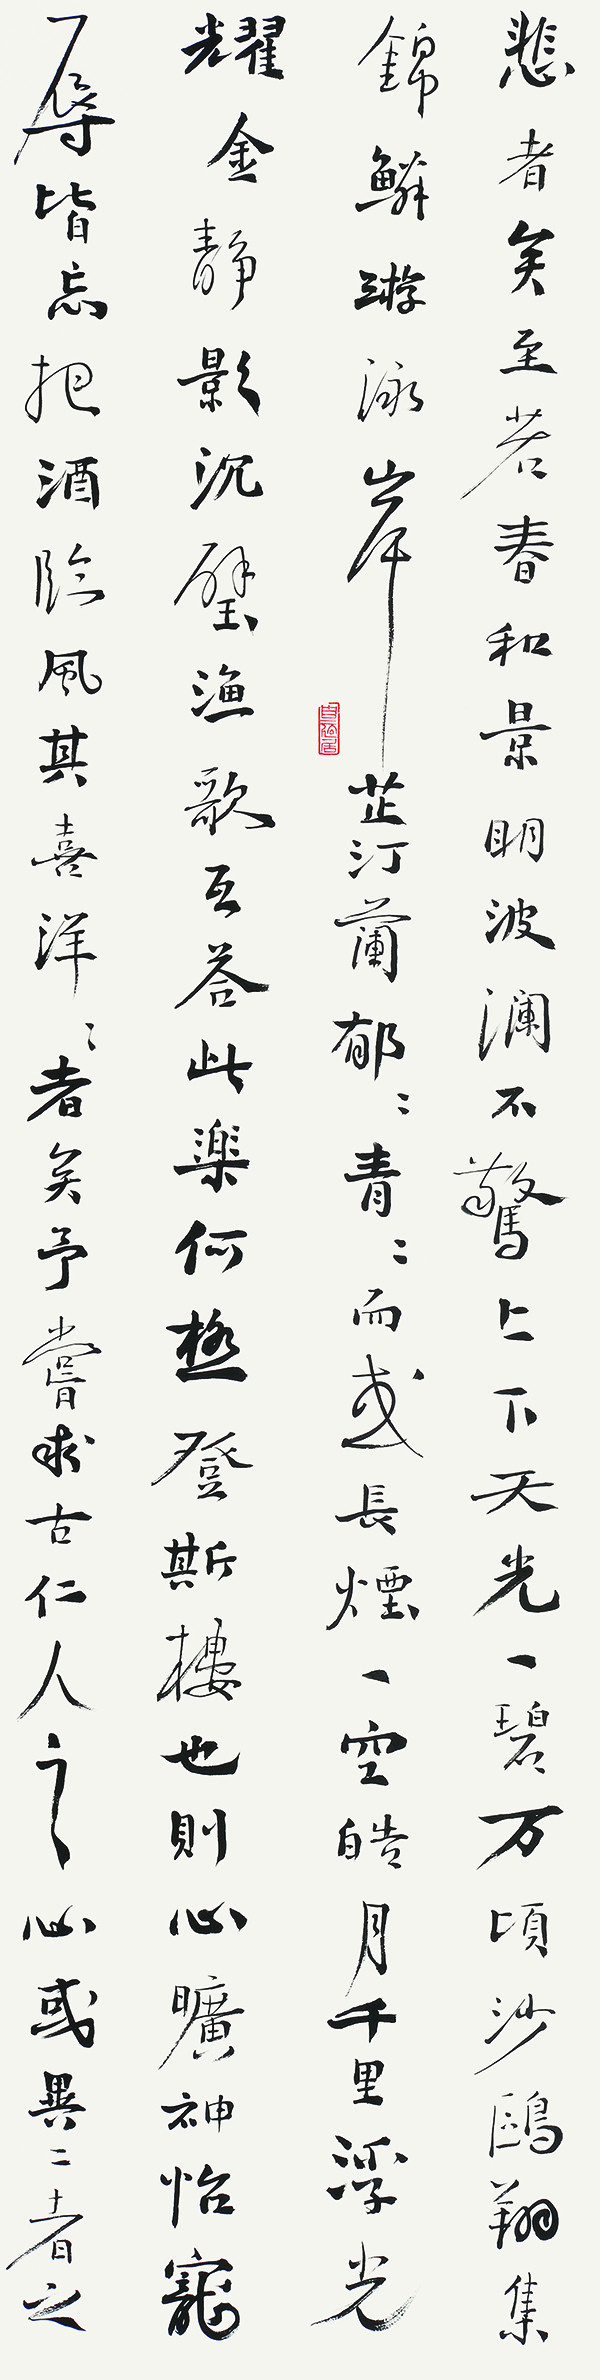 悲者矣至若春和景明波澜不驚上下天光一碧万頃沙鷗翔集
錦鱗游泳岸芷汀蘭郁〻青〻而或長煙一空皓月千里浮光
耀金静影沉璧漁歌互答此楽何極登斯樓也則心曠神怡寵
辱皆忘把酒臨風其喜洋〻者矣予嘗求古仁人之心或異二者之